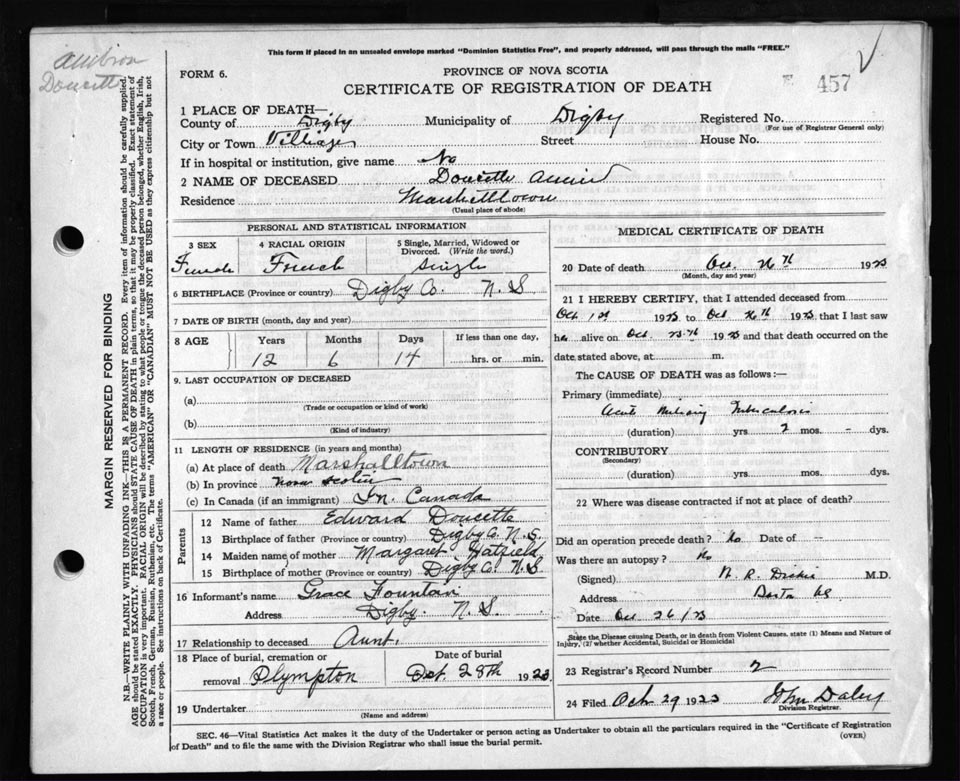 This form if placed in an unsealed envelope marked "Dominion Statistics Free", and properly addressed, will pass through the mails "FREE."
Doucette
FORM 6.
PROVINCE OF NOVA SCOTIA
457
CERTIFICATE OF REGISTRATION OF DEATH
1 PLACE OF DEATH—
County of Digby Municipality of Digby Registered No.
(For use of Registrar General only)
City or Town Street House No.
If in hospital or institution, give name No
2 NAME OF DECEASED Doucette
Residence Marshalltown
(Usual place of abode)
PERSONAL AND STATISTICAL INFORMATION
3 SEX 4 RACIAL ORIGIN 5 Single, Married, Widowed or Divorced. (Write the word.)
Female French Single
6 BIRTHPLACE (Province or country) Digby Co. N. S
7 DATE OF BIRTH (month, day and year)
8 AGE Years Months Days If less than one day,
12 6 14 hrs. or min.
9. LAST OCCUPATION OF DECEASED
(a)
(Trade or occupation or kind of work)
(b)
(Kind of industry)
11 LENGTH OF RESIDENCE (in years and months)
(a) At place of death Marshalltown
(b) In province Nova Scotia
(c) In Canada (if an immigrant) In. Canada
Parents
12 Name of father Edward Doucette
13 Birthplace of father (Province or country) Digby Co. N. S.
14 Maiden name of mother Margaret Hatfield
15 Birthplace of mother (Province or country) Digby Co. N. S
16 Informant's name Grace Fountain
Address Digby. N. S
17 Relationship to deceased Aunt.
18 Place of burial, cremation or removal Plympton
Date of burial
Oct. 28th 1923
19 Undertaker
(Name and address)
MEDICAL CERTIFICATE OF DEATH
20 Date of death Oct. 26th 1923
(Month, day and year)
21 I HEREBY CERTIFY, that I attended deceased from
Oct 1st 1923 to Oct 26th 1923, that I last saw
alive on Oct. 1923 and that death occurred on the
date stated above, at m.
The CAUSE OF DEATH was as follows:—
Primary (immediate)
Acute Miliary Tuberculosis
(duration) yrs 2 mos. - dys.
CONTRIBUTORY
(Secondary)
(duration) yrs mos. dys.
22 Where was disease contracted if not at place of death?
Did an operation precede death? No Date of —
Was there an autopsy? No
(Signed) M.D.
Address
Date Oct 26/23
State the Disease causing Death, or in death from Violent Causes, state (1) Means and Nature of
Injury, (2) whether Accidental, Suicidal or Homicidal
23 Registrar's Record Number 2
24 Filed Oct 29 1923 John Daley
Division Registrar.
SEC. 46—Vital Statistics Act makes it the duty of the Undertaker or person acting as Undertaker to obtain all the particulars required in the "Certificate of Registration
of Death" and to file the same with the Division Registrar who shall issue the burial permit.
(OVER)
MARGIN RESERVED FOR BINDING
N.B.—WRITE PLAINLY WITH UNFADING INK—THIS IS A PERMANENT RECORD. Every item of information should be carefully supplied.
AGE should be stated EXACTLY. PHYSICIANS should STATE CAUSE OF DEATH in plain terms, so that it may be properly classified. Exact statement of
OCCUPATION is very important. RACIAL ORIGIN will be described by stating to what people or tongue the deceased person belonged, whether English, Irish,
Scotch, French, German, Russian, Ruthenian, etc. The terms "AMERICAN" OR "CANADIAN" MUST NOT BE USED as they express citizenship but not
a race or people. See instructions on back of Certificate.